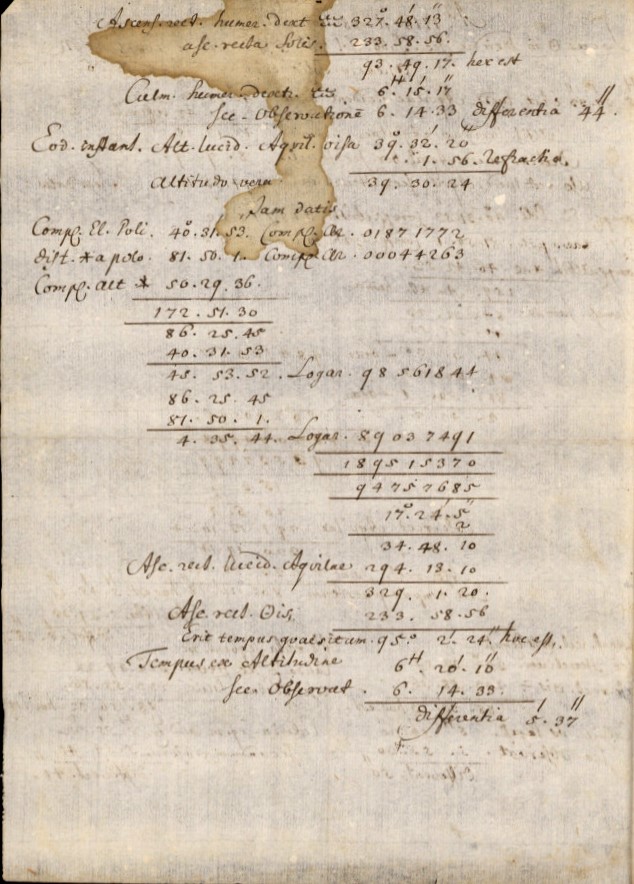 Ascens. rect. humer. dext. ♒ 327°. 48′. 13″
asc. recta Solis. 233. 58. 56.
93. 49. 17. hoc est
Culm. humer. dext. ♒ 6H. 15′. 17″
sec. Observatione 6. 14. 33 differentia 44″
Eod. instant. Alt. lucid. Aquil. visa 39°. 32′. 20″
1. 56. Refractio.
Altitudo vera 39. 30. 24
Jam datis
Comp. El. Poli. 40°. 31′. 53. Comp. Ar. 01871772
dist. * a polo. 81. 50. 1. Comp. Ar. 00044263
Comp. alt * 50. 29. 36.
172. 51. 30
86. 25. 45
40. 31. 53
45. 53. 52. Logar. 98561844
86. 25. 45
81. 50. 1.
4. 35. 44. Logar. 89037491
189515370
94757685
17°. 24′. 5″
2
34. 48. 10
Asc. rect. lucid. Aquilae 294. 13. 10
329. 1. 20.
Asc. rect. Olis, 233. 58. 56
Erit tempus quaesitum. 95°. 2′. 24″ hoc est,
Tempus ex Altitudine 6H. 20′. 10″
sec. Observat. 6. 14. 33.
differentia 5′. 37″